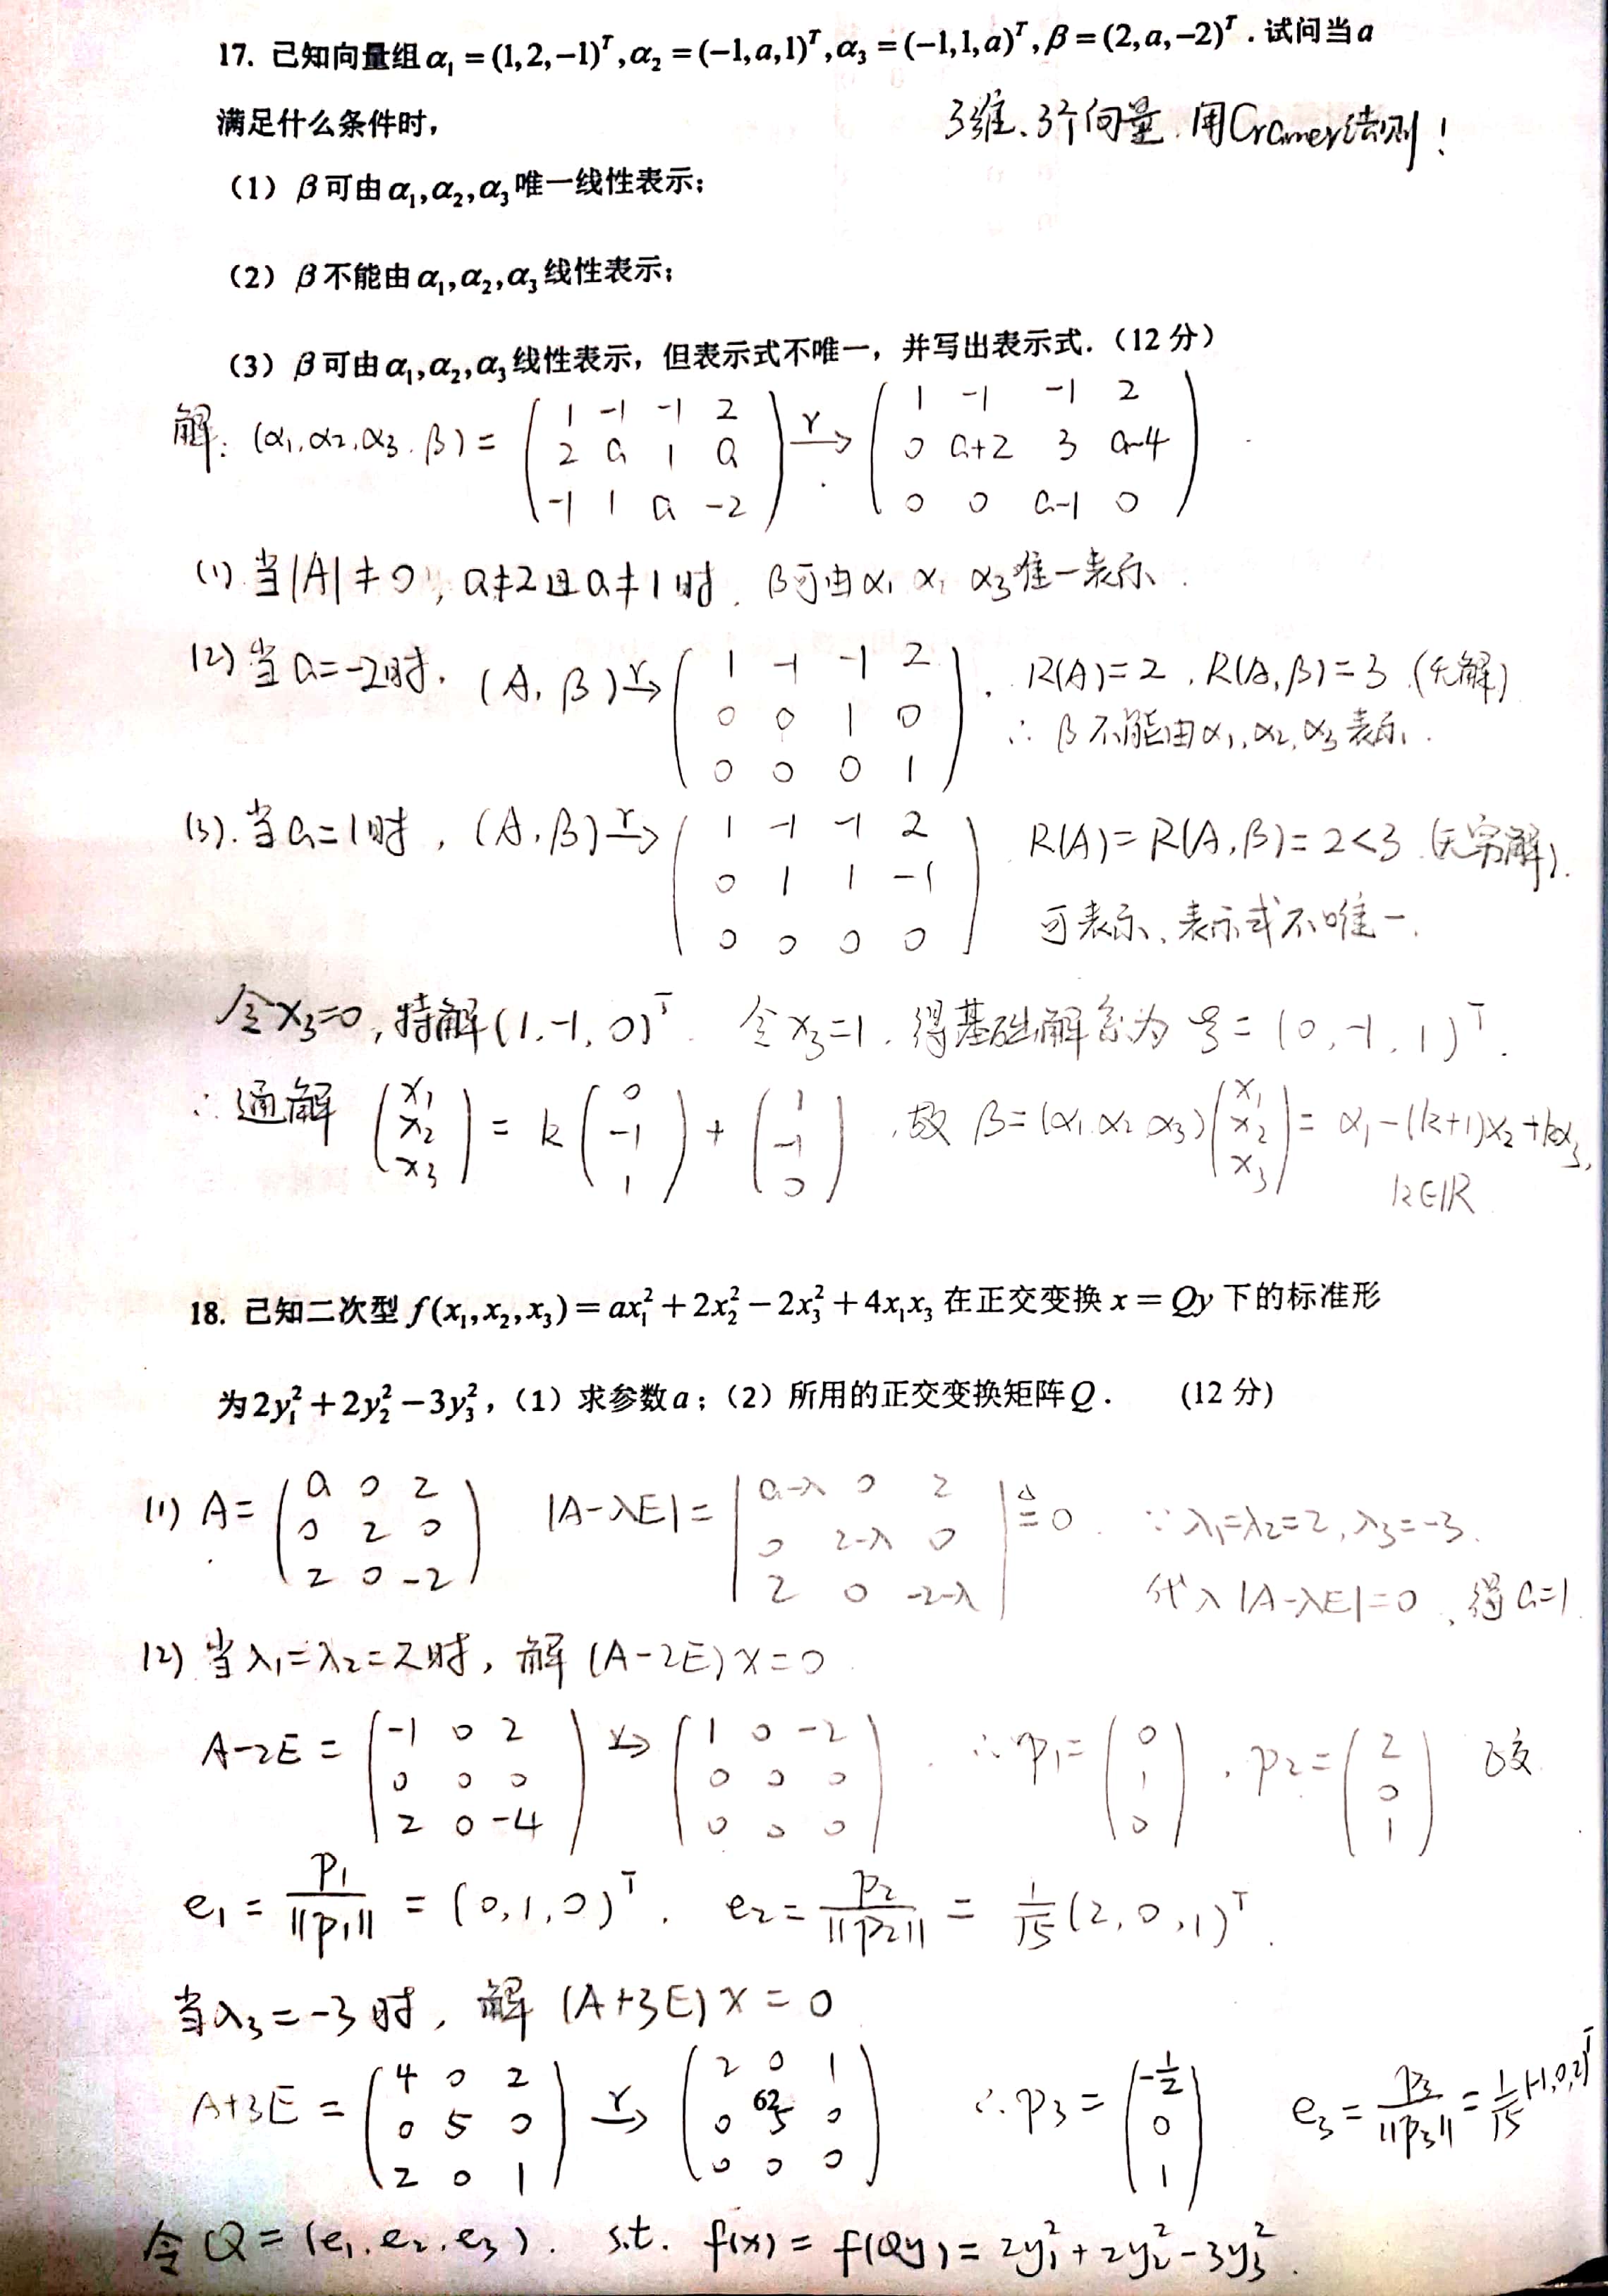 17. 已知向量组α₁=(1,2,−1)ᵀ,α₂=(−1,a,1)ᵀ,α₃=(−1,1,a)ᵀ,β=(2,a,−2)ᵀ.试问当a
满足什么条件时,
3维、3个向量.用Cramer法则!
(1) β可由α₁,α₂,α₃唯一线性表示;
(2) β不能由α₁,α₂,α₃线性表示;
(3) β可由α₁,α₂,α₃线性表示, 但表示式不唯一, 并写出表示式.(12分)
解: (α₁,α₂,α₃.β)= (1 −1 −1 2; 2 a 1 a; −1 1 a −2) r→ (1 −1 −1 2; 0 a+2 3 a−4; 0 0 a−1 0)
(1) 当|A|≠0, a≠2且a≠1时. β可由α₁ α₂ α₃唯一表示.
(2) 当a=−2时. (A, β) r→ (1 −1 −1 2; 0 0 1 0; 0 0 0 1). R(A)=2, R(A,β)=3 (无解)
∴ β不能由α₁,α₂,α₃表示.
(3). 当a=1时, (A,β) r→ (1 −1 −1 2; 0 1 1 −1; 0 0 0 0) R(A)=R(A,β)=2<3 (无穷解).
可表示、表示式不唯一.
令x₃=0,特解(1,−1,0)ᵀ. 令x₃=1, 得基础解系为 ξ=(0,−1,1)ᵀ.
∴通解 (x₁; x₂; x₃) = k(0; −1; 1) + (1; −1; 0), 故 β=(α₁ α₂ α₃)(x₁; x₂; x₃)= α₁−(k+1)α₂+kα₃,
k∈ℝ
18. 已知二次型 f(x₁,x₂,x₃)=ax₁²+2x₂²−2x₃²+4x₁x₃ 在正交变换 x=Qy 下的标准形
为2y₁²+2y₂²−3y₃², (1) 求参数a; (2) 所用的正交变换矩阵Q. (12分)
(1) A= (a 0 2; 0 2 0; 2 0 −2) |A−λE|= |a−λ 0 2; 0 2−λ 0; 2 0 −2−λ| ≜ 0. ∵ λ₁=λ₂=2, λ₃=−3.
代入|A−λE|=0, 得a=1
(2) 当λ₁=λ₂=2时, 解 (A−2E)x=0
A−2E = (−1 0 2; 0 0 0; 2 0 −4) r→ (1 0 −2; 0 0 0; 0 0 0). ∴ p₁=(0; 1; 0), p₂=(2; 0; 1) 已交
e₁= p₁/||p₁|| = (0,1,0)ᵀ. e₂= p₂/||p₂|| = 1/√5 (2,0,1)ᵀ.
当λ₃=−3时, 解 (A+3E)x=0
A+3E = (4 0 2; 0 5 0; 2 0 1) r→ (2 0 1; 0 5 0; 0 0 0) ∴ p₃ = (−1/2; 0; 1) e₃= p₃/||p₃|| = 1/√5 (−1,0,2)ᵀ
62
令 Q=(e₁.e₂.e₃). s.t. f(x)=f(Qy)=2y₁²+2y₂²−3y₃².